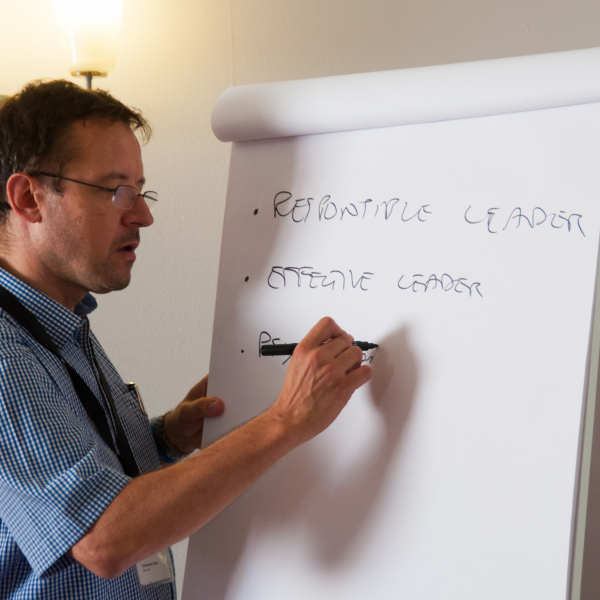 • RESPONSIBLE LEADER
• EFFECTIVE LEADER
•